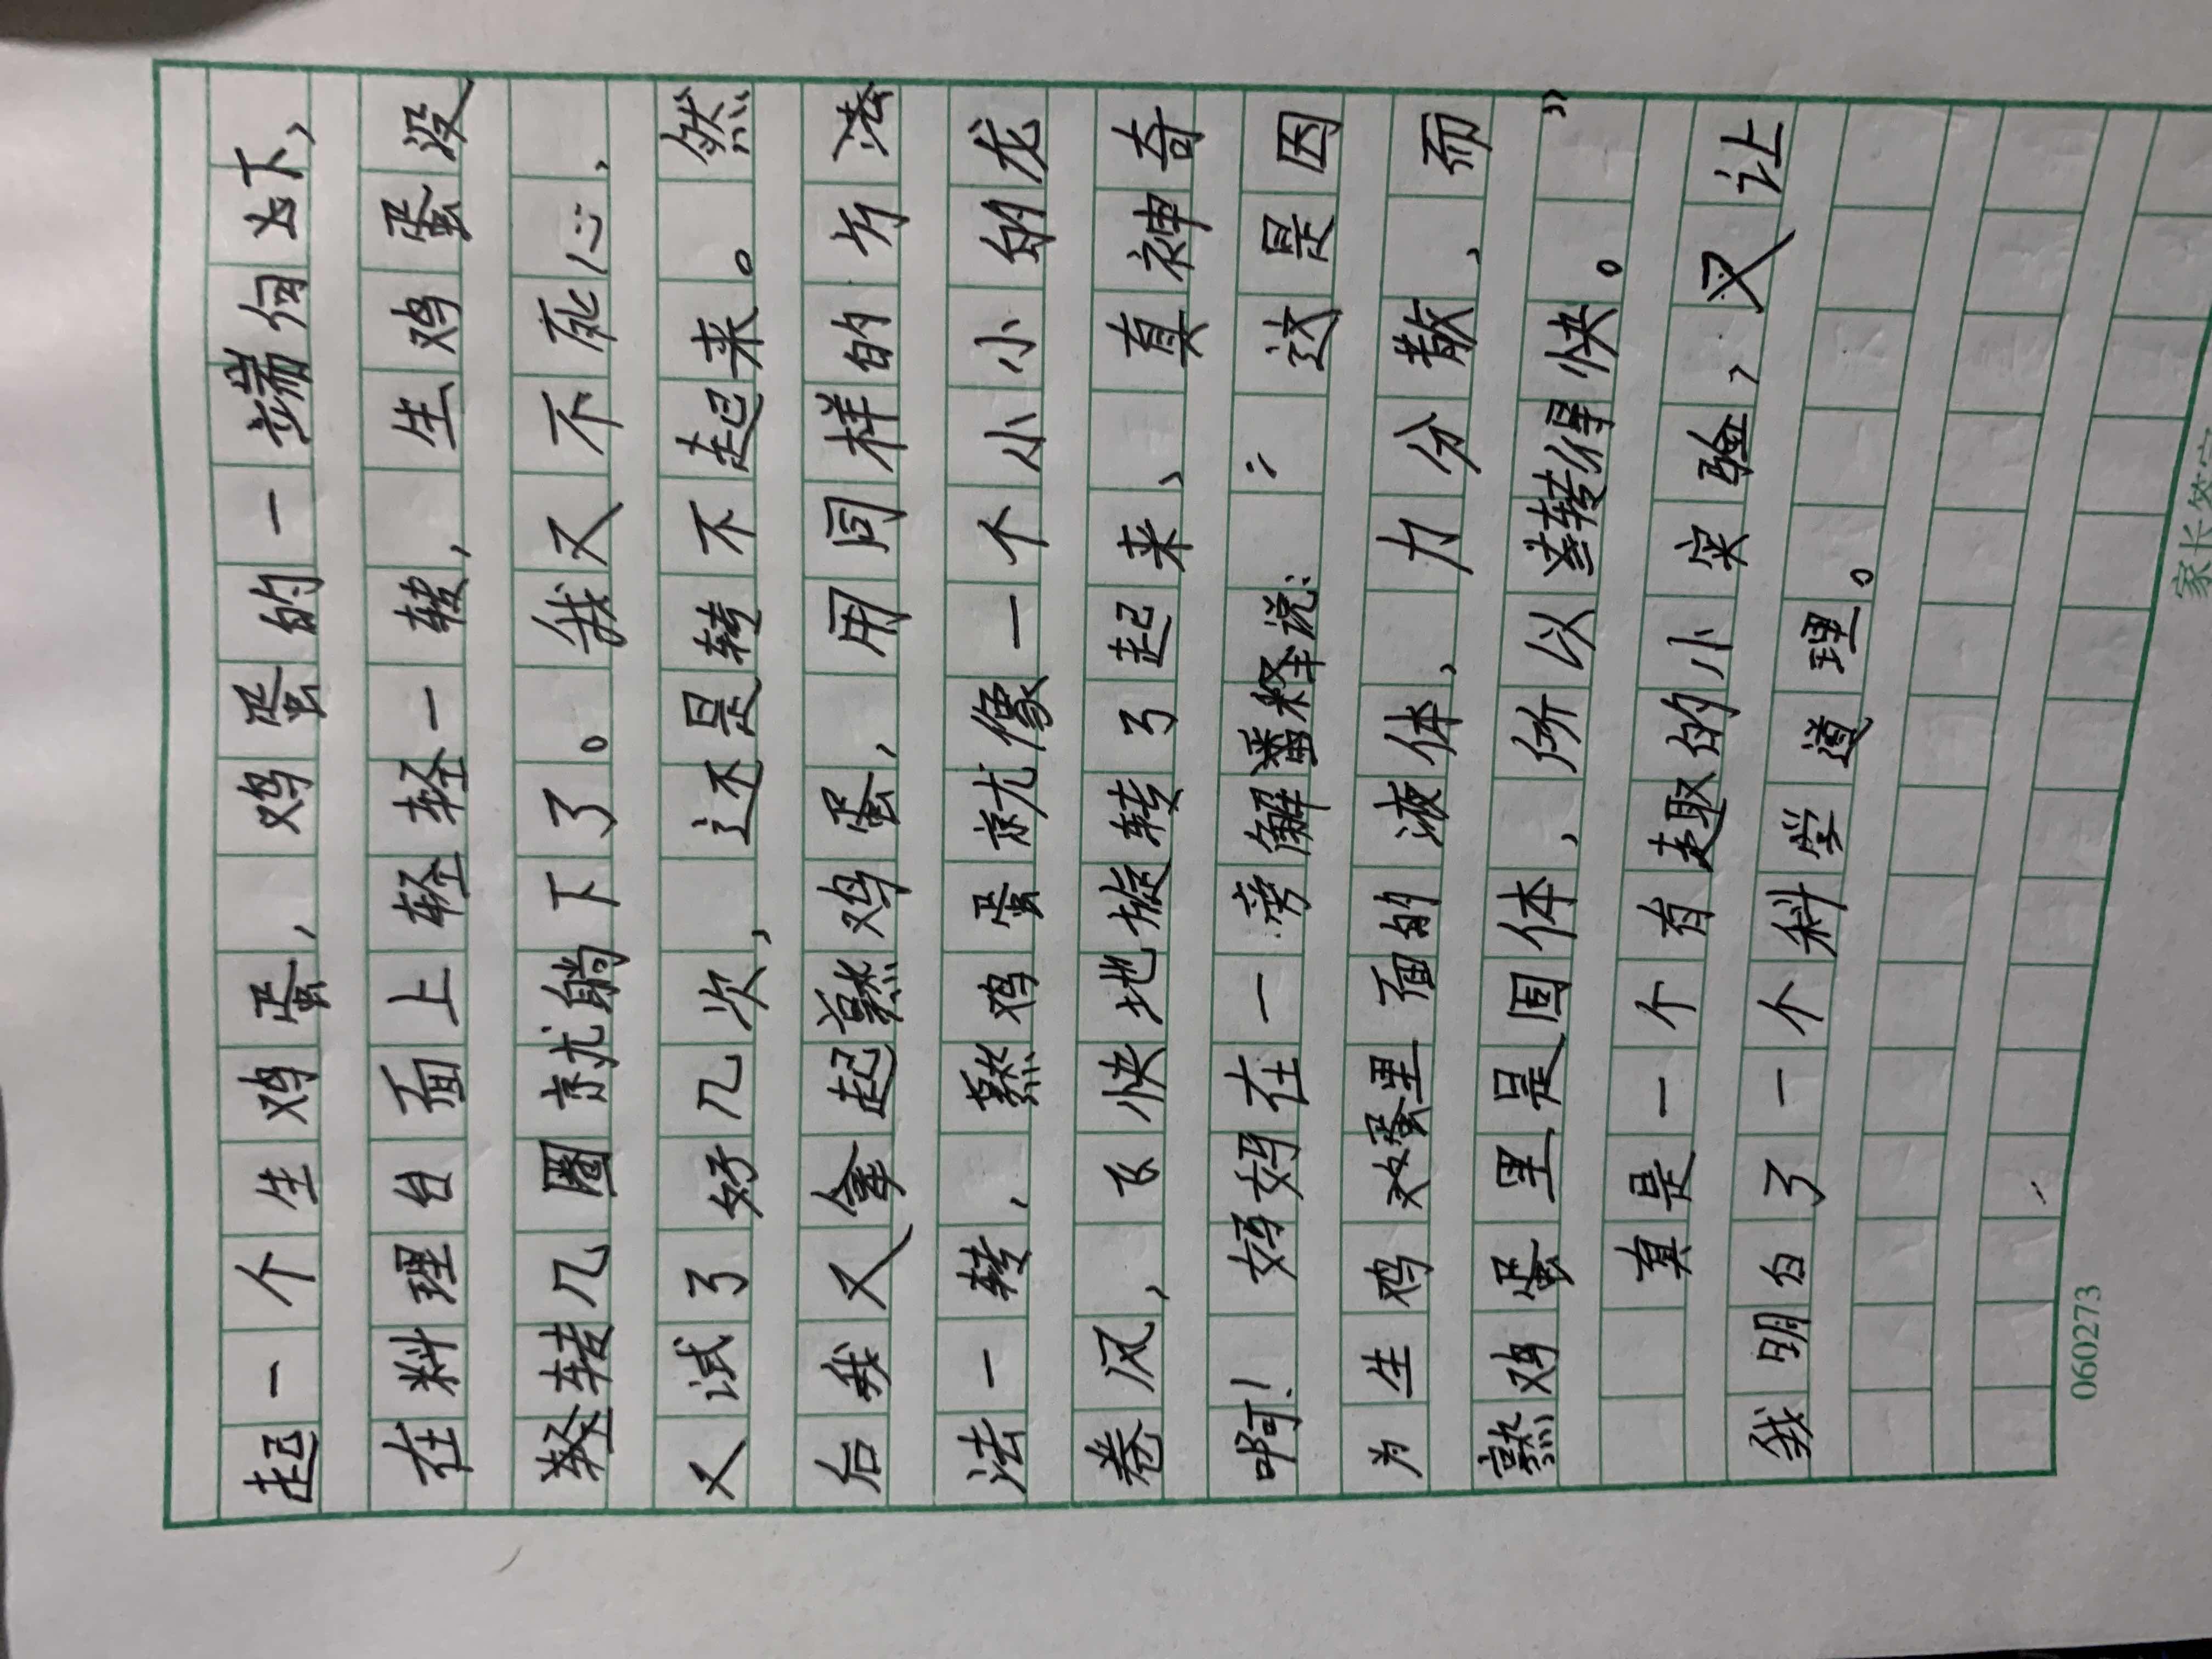 起一个生鸡蛋，鸡蛋的一端向下，
在料理台面上轻轻一转，生鸡蛋没
轻转几圈就躺下了。我又不死心，
又试了好几次，还是转不起来。然
后我又拿起熟鸡蛋，用同样的方法
法一转，熟鸡蛋就像一个小小的龙
卷风，飞快地旋转了起来，真神奇
啊！妈妈在一旁解释说：“这是因
为生鸡蛋里面的液体，力分散，而
熟鸡蛋里是固体，所以转得快。”
真是一个有趣的小实验，又让
我明白了一个科学道理。
060273
家长签字